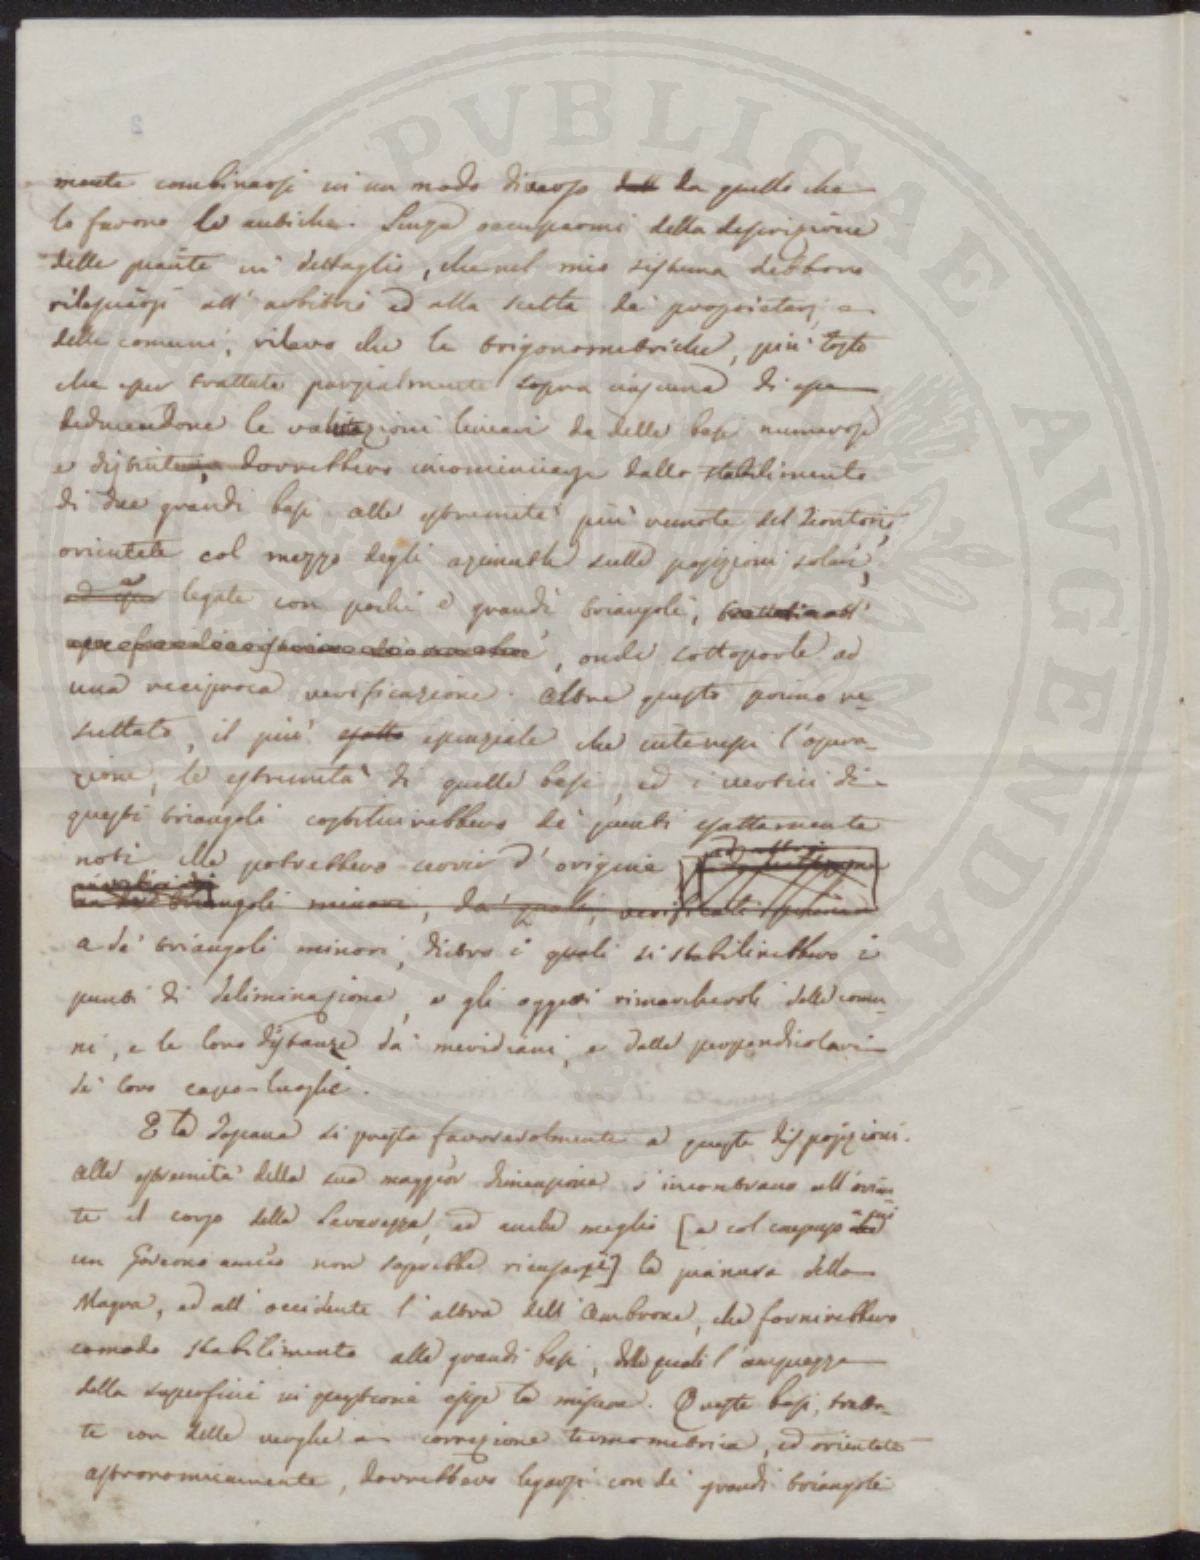 PVBLICAE AVGENDAE
mente combinarsi in un modo diverso da quello che
lo farono le antiche. Senza occuparmi della descrizione
delle piante in dettaglio, che nel mio sistema debbono
rilasciarsi all' arbitrio ed alla scelta de' proprietarj e
delle comuni, rilevo che le trigonometriche, piu' tosto
che esser trattate parzialmente sopra ciascuna di esse
deducendone le valutazioni lineari da delle basi numerose
e distinte, dovrebbero incominciarsi dallo stabilimento
di due grandi basi alle estremità più remote del Territorio,
orientate col mezzo degli azimuth sulle posizioni solari,
legate con pochi e grandi triangoli,
, onde sottoporle ad
una reciproca verificazione. Oltre questo primo re-
sultato, il più esatto essenziale che interessi l'opera-
zione, le estremità di quelle basi, ed i vertici di
questi triangoli costituirebbero de' punti esattamente
noti che potrebbero servir d' origine
triangoli minori, da' quali, verificati
a de' triangoli minori, dietro i quali si stabilirebbero i
punti di deliminazione, e gli oggetti rimarchevoli delle comu-
ni, e le loro distanze da' meridiani, e dalle perpendicolari
de' loro capo-luoghi.
E la Toscana si presta favorevolmente a queste disposizioni.
Alle estremità della sua maggior dimensione s' incontrano all'orien-
te il corpo della Seravezza, ed anche meglio [e col compenso
un Governo amico non saprebbe ricusarsi] la pianura della
Magra, ed all' occidente l' altra dell' Ombrone, che fornirebbero
comodo stabilimento alle grandi basi, delle quali l'ampiezza
della superficie in questione esige la misura. Queste basi, tratta-
te con delle verghe a correzione termometrica, ed orientate
astronomicamente, dovrebbero legarsi con de' grandi triangoli